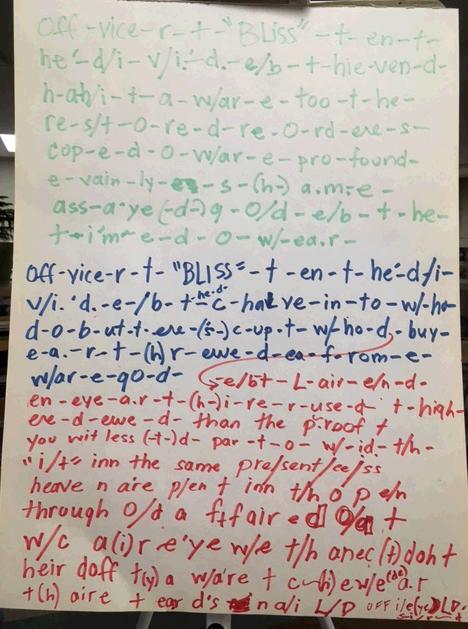 Off-vice-r-t-"BLISS"-t-en-t-
he'-d/i-v/i.'-d.-e/b-t-hie-ven-d-
h-ah/i-t-a-w/ar-e-too-t-he-
re-s/t-O-re-d-re-O-rd-ere-s-
cop-e-d-O-w/ar-e-pro-found-
e-vain-ly-es-s-(h-) a.m-e-
ass-a-ye(-d-)g-O/d-e/b-t-he-
t-i'm-e-d-O-w/-ea.r-
Off-vice-r-t-"BLISS"-t-en-t-he'-d/i-
v/i.'d.-e-/b-t-he-d-c-halve-in-to-w/-ho-
d-o-b-ut-t-ere-(s-)c-up-t-w/ho-d,-buy-
e-a.-r-t-(h)r-ewe-d-ea-f-rom-e-
w/ar-e-go-d-
se/bt-L-air-e/n-d-
en-eye-a.r-t-(h-)i-re-r-use-d- t-high-
ere-d-ewe-d- than the proof t
you wit less (-t-)d- par-t-o- w/-id.-t/h-
"i/t" inn the same pre/sent/ce/ss
heave n are p/en t inn t/h O p e/n
through O/d a f+fair e d O/a t
w/c a(i)r e'ye w/e t/h anec(t)doh t
heir doff t(y) a w/are t c-(h)e w/e (be) a.r
t(h) aire t ear d's n a/i L/D OFF i/e(ye)DLD-